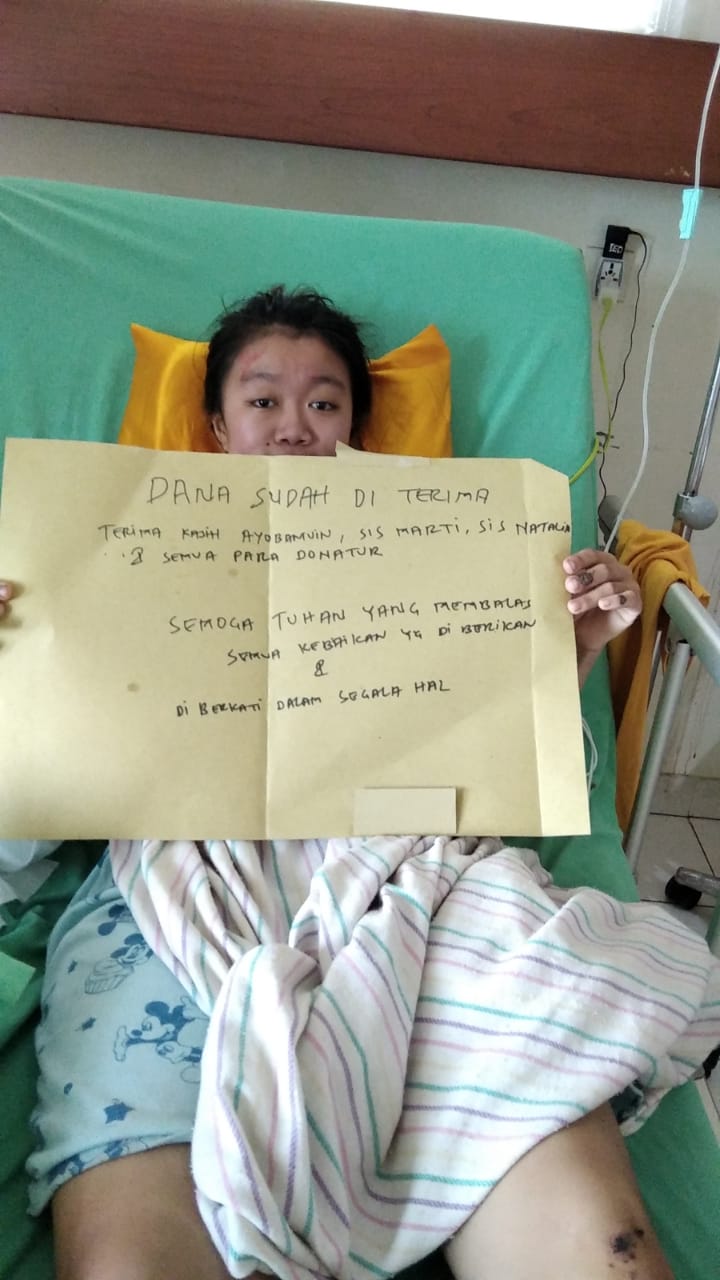 DANA SUDAH DI TERIMA
TERIMA KASIH AYOBAMUIN, SIS MARTI, SIS NATALIA
& SEMUA PARA DONATUR
SEMOGA TUHAN YANG MEMBALAS
SEMUA KEBAIKAN YG DI BERIKAN
&
DI BERKATI DALAM SEGALA HAL